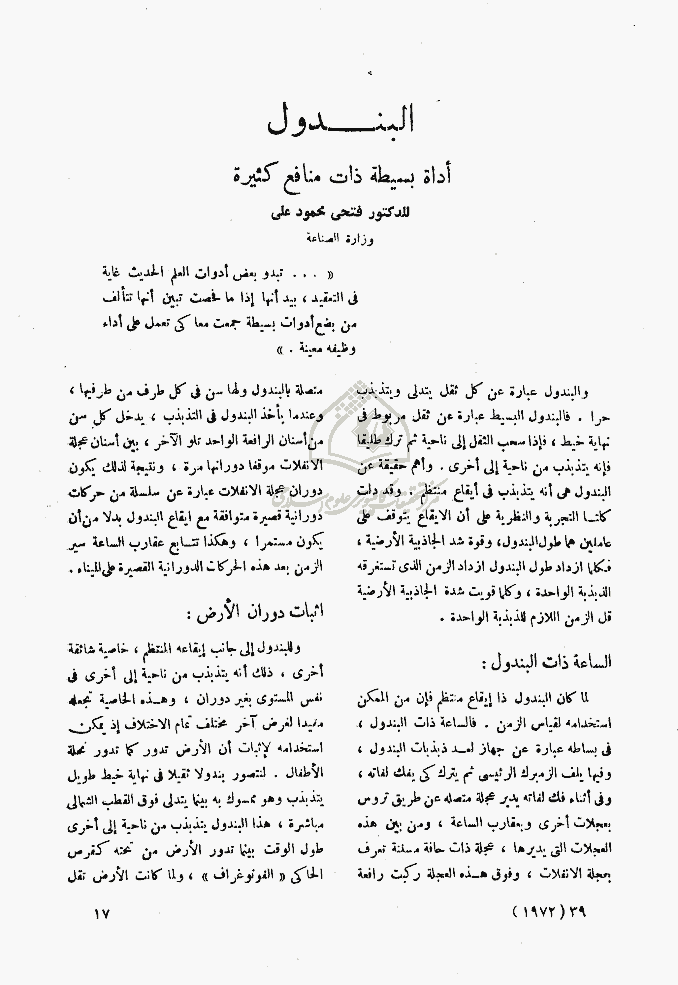 البنــــدول
أداة بسيطة ذات منافع كثيرة
للدكتور فتحى محمود على
وزارة الصناعة
« ... تبدو بعض أدوات العلم الحديث غاية
فى التعقيد ، بيد أنها إذا ما فحصت تبين أنها تتألف
من بضع أدوات بسيطة جمعت معا كى تعمل على أداء
وظيفه معينة . »
والبندول عبارة عن كل ثقل يتدلى ويتذبذب
حرا . فالبندول البسيط عبارة عن ثقل مربوط فى
نهاية خيط ، فإذا سحب الثقل إلى ناحية ثم ترك طليقا
فإنه يتذبذب من ناحية إلى أخرى . وأهم حقيقة عن
البندول هى أنه يتذبذب فى أيقاع منتظم . وقد دلت
كاتا التجربة والنظرية على أن الايقاع يتوقف على
عاملين هما طول البندول ، وقوة شد الجاذبية الأرضية ،
فكلما ازداد طول البندول ازداد الزمن الذى تستغرقه
الذبذبة الواحدة ، وكلما قويت شدة الجاذبية الأرضية
قل الزمن اللازم للذبذبة الواحدة .
الساعة ذات البندول :
لما كان البندول ذا إيقاع منتظم فإن من الممكن
استخدامه لقياس الزمن . فالساعة ذات البندول ،
فى بساطه عبارة عن جهاز لعد ذبذبات البندول ،
وفيها يلف الزمبرك الرئيسى ثم يترك كى يفك لفاته ،
وفى أثناء فك لفاته يدير عجلة متصله عن طريق تروس
بعجلات أخرى وبعقارب الساعة ، ومن بين هذه
العجلات التى يديرها ، عجلة ذات حافة مسننة تعرف
بعجلة الانفلات ، وفوق هــذه العجلة ركبت رافعة
متصلة بالبندول ولها سن فى كل طرف من طرفيها ،
وعندما يأخذ البندول فى التذبذب ، يدخل كل سن
من أسنان الرافعة الواحد تلو الآخر ، بين أسنان عجلة
الانفلات موقفا دورانها مرة ، ونتيجة لذلك يكون
دوران عجلة الانفلات عبارة عن سلسلة من حركات
دورانية قصيرة متوافقة مع إيقاع البندول بدلا من أن
يكون مستمرا ، وهكذا تتابع عقارب الساعة سير
الزمن بعد هذه الحركات الدورانية القصيرة على الميناء .
اثبات دوران الأرض :
وللبندول إلى جانب إيقاعه المنتظم ، خاصية شائقة
أخرى ، ذلك أنه يتذبذب من ناحية إلى أخرى فى
نفس المستوى بغير دوران ، وهــذه الخاصية تجعله
مفيدا لغرض آخر مختلف تمام الاختلاف إذ يمكن
استخدامه لإثبات أن الأرض تدور كما تدور نحلة
الأطفال . لنتصور بندولا ثقيلا فى نهاية خيط طويل
يتذبذب وهو ممسوك به بينما يتدلى فوق القطب الشمالى
مباشرة ، هذا البندول يتذبذب من ناحية إلى أخرى
طول الوقت بينما تدور الأرض من تحته كقرص
الحاكى « الفونوغراف » ، ولما كانت الأرض تقل
٣٩ (١٩٧٢)
١٧